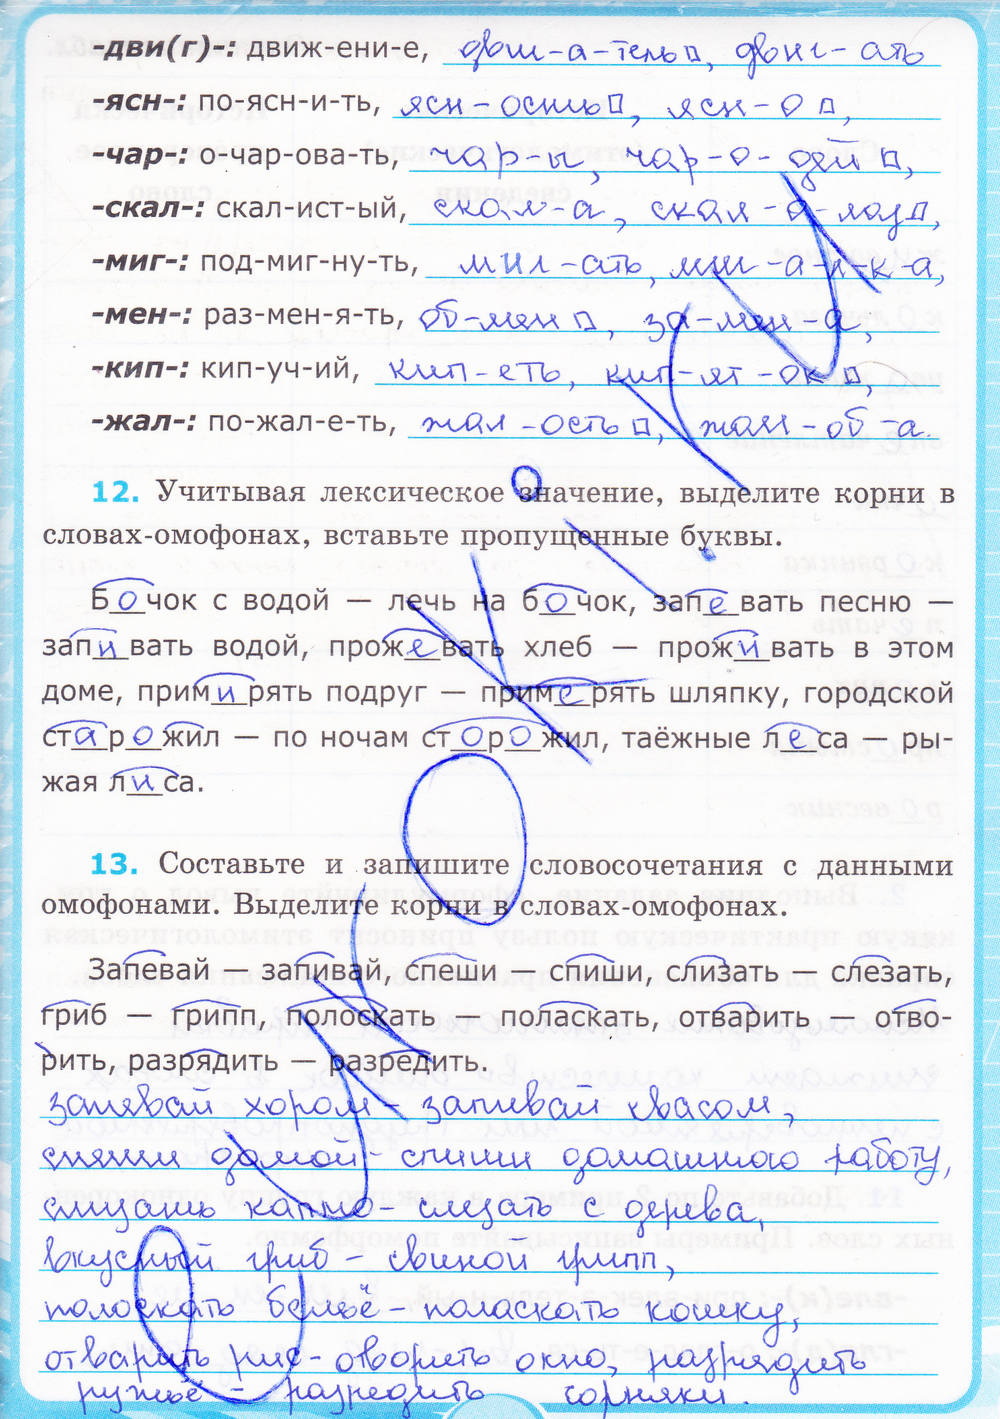 -дви(г)-: движ-ени-е, двиг-а-тель□, двиг-ать
-ясн-: по-ясн-и-ть, ясн-ость□, ясн-о□,
-чар-: о-чар-ова-ть, чар-ы, чар-о-дей□,
-скал-: скал-ист-ый, скал-а, скал-о-лаз□,
-миг-: под-миг-ну-ть, миг-ать, миг-а-л-к-а,
-мен-: раз-мен-я-ть, об-мен□, за-мен-а,
-кип-: кип-уч-ий, кип-еть, кип-ят-ок□,
-жал-: по-жал-е-ть, жал-ость□, жал-об-а.
12. Учитывая лексическое значение, выделите корни в
словах-омофонах, вставьте пропущенные буквы.
Бочок с водой — лечь на бочок, запевать песню —
запивать водой, прожевать хлеб — проживать в этом
доме, примирять подруг — примерять шляпку, городской
старожил — по ночам сторожил, таёжные леса — ры-
жая лиса.
13. Составьте и запишите словосочетания с данными
омофонами. Выделите корни в словах-омофонах.
Запевай — запивай, спеши — спиши, слизать — слезать,
гриб — грипп, полоскать — поласкать, отварить — отво-
рить, разрядить — разредить.
запевай хором - запивай квасом,
спеши домой - спиши домашнюю работу,
слизать каплю - слезать с дерева,
вкусный гриб - свиной грипп,
полоскать бельё - поласкать кошку,
отварить рис - отворить окно, разрядить
ружьё - разредить сорняки.